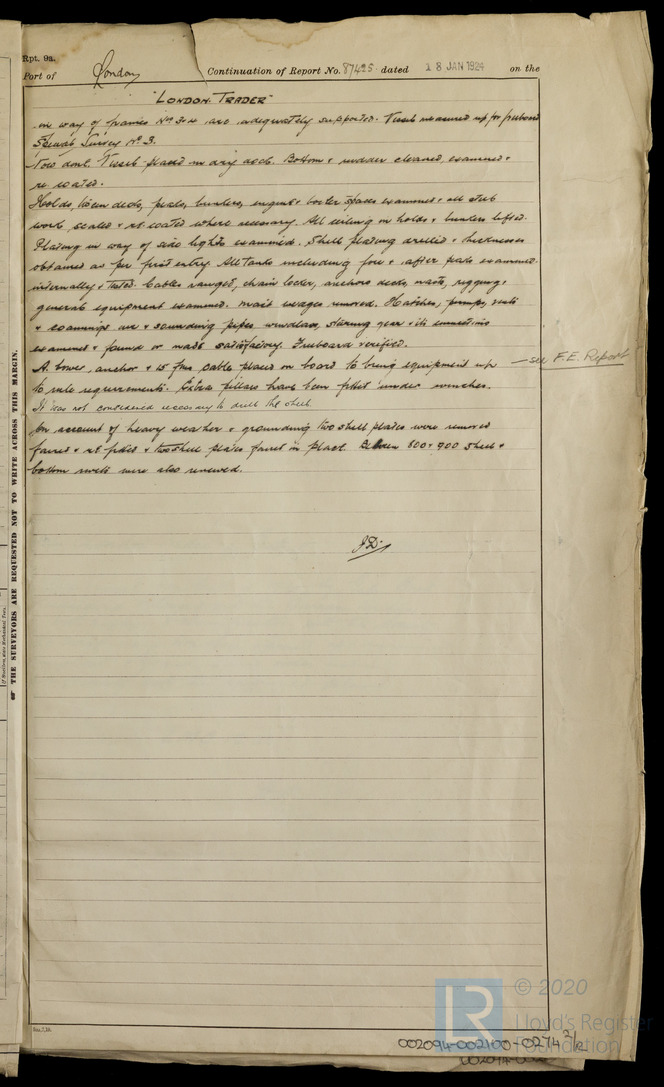 Rpt. 9a.
Port of London Continuation of Report No. 87425 dated 18 JAN 1924 on the
"LONDON TRADER"
in way of frames Nos 3 & 4 are adequately supported. Vessel measured up for freeboard
Special Survey No 3.
Now done. Vessel placed in dry dock. Bottom & rudder cleaned, examined &
re coated.
Holds, tween decks, peaks, bunkers, engine & boiler spaces examined & all steel
work, scaled & re coated where necessary. All ceiling in holds & bunkers lifted.
Plating in way of side lights examined. Shell plating drilled & thicknesses
obtained as per first entry All Tanks including fore & after peaks examined
internally & tested. Cables ranged, chain locker, anchors decks, masts, rigging &
general equipment examined. mast wedges removed. Hatches, pumps,
& coamings air & sounding pipes windlass, steering gear & its connections
examined & found or made satisfactory. Freeboard verified.
A bower anchor & 15 fms cable placed on board to bring equipment up — see F.E. Report
to rule requirements. Extra pillars have been fitted under winches.
It was not considered necessary to drill the shell.
On account of heavy weather & grounding two shell plates were removed
faired & re fitted & two shell plates faired in place. Between 800 & 900 shell &
bottom rivets were also renewed.
JD
OF THE SURVEYORS ARE REQUESTED NOT TO WRITE ACROSS THIS MARGIN.
LR
© 2020
Lloyd's Register
Foundation
002094-002100-0274 2/2
002094-002